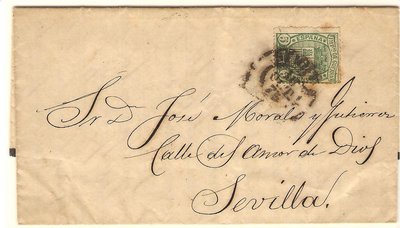 ESPAÑA
Sr D. José Morales y Gutierrez
Calle del Amor de Dios
Sevilla.